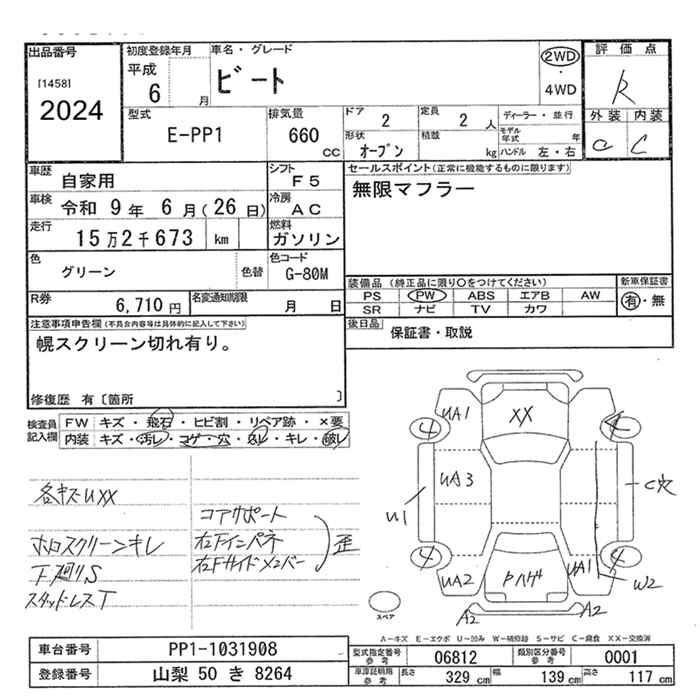 出品番号
[1458]
2024
初度登録年月
平成
6 月
車名・グレード
ビート
2WD
・
4WD
評価点
R
外装 内装
a C
型式
E-PP1
排気量
660 CC
ドア
2
定員
2 人
ディーラー・並行
形状
オープン
積載
kg
モデル年式 年
ハンドル 左・右
車歴
自家用
シフト
F5
セールスポイント(正常に機能するものに限ります)
無限マフラー
車検
令和 9 年 6 月(26 日)
冷房
AC
走行
15万2千673 km
燃料
ガソリン
色
グリーン
色替
色コード
G-80M
装備品(純正品に限り○をつけてください)
PS PW ABS エアB AW
SR ナビ TV カワ
新車保証書
有・無
R券
6,710 円
名変通知期限
月 日
後日品
保証書・取説
注意事項申告欄(不具合内容等は具体的に記入して下さい)
幌スクリーン切れ有り。
修復歴 有〔箇所 〕
検査員記入欄
FW キズ・飛石・ヒビ割・リペア跡・×要
内装 キズ・汚レ・コゲ・穴・凶レ・キレ・破レ
各キズUXX
ホロスクリーンキレ
下廻りS
スタッドレスT
コアサポート
右下インパネ
右Fサイドメンバー
歪
UA1
XX
4
4
UA3
U1
C穴
4
4
UA2
UA1
W2
A2
A2
スペア
A-キズ E-エクボ U-凹み W-補修跡 S-サビ C-腐食 XX-交換済
車台番号
PP1-1031908
登録番号
山梨 50 き 8264
型式指定番号
参考
06812
類別区分番号
参考
0001
車庫証明用
参考
長さ
329 cm
幅
139 cm
高さ
117 cm